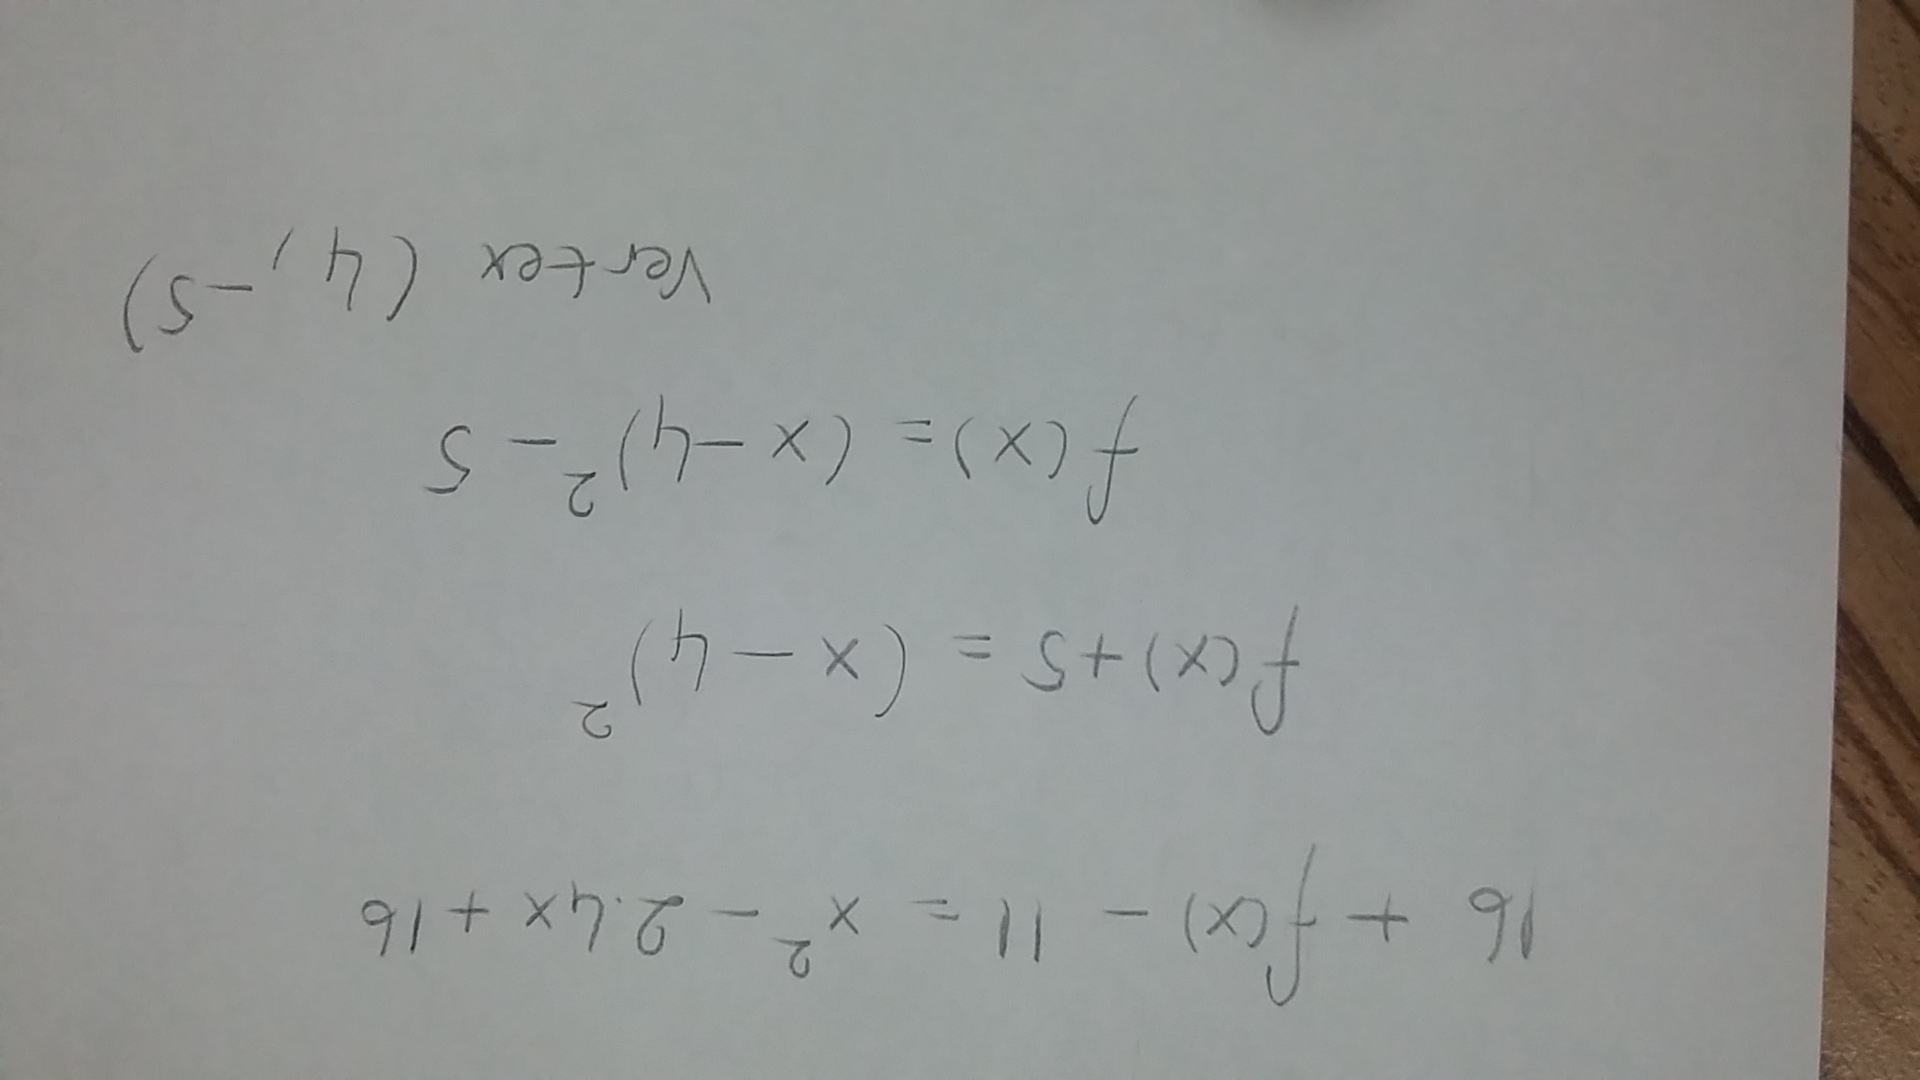 16 + f(x) - 11 = x² - 2·4x + 16
f(x)+5 = (x - 4)²
f(x) = (x - 4)² - 5
Vertex (4, -5)